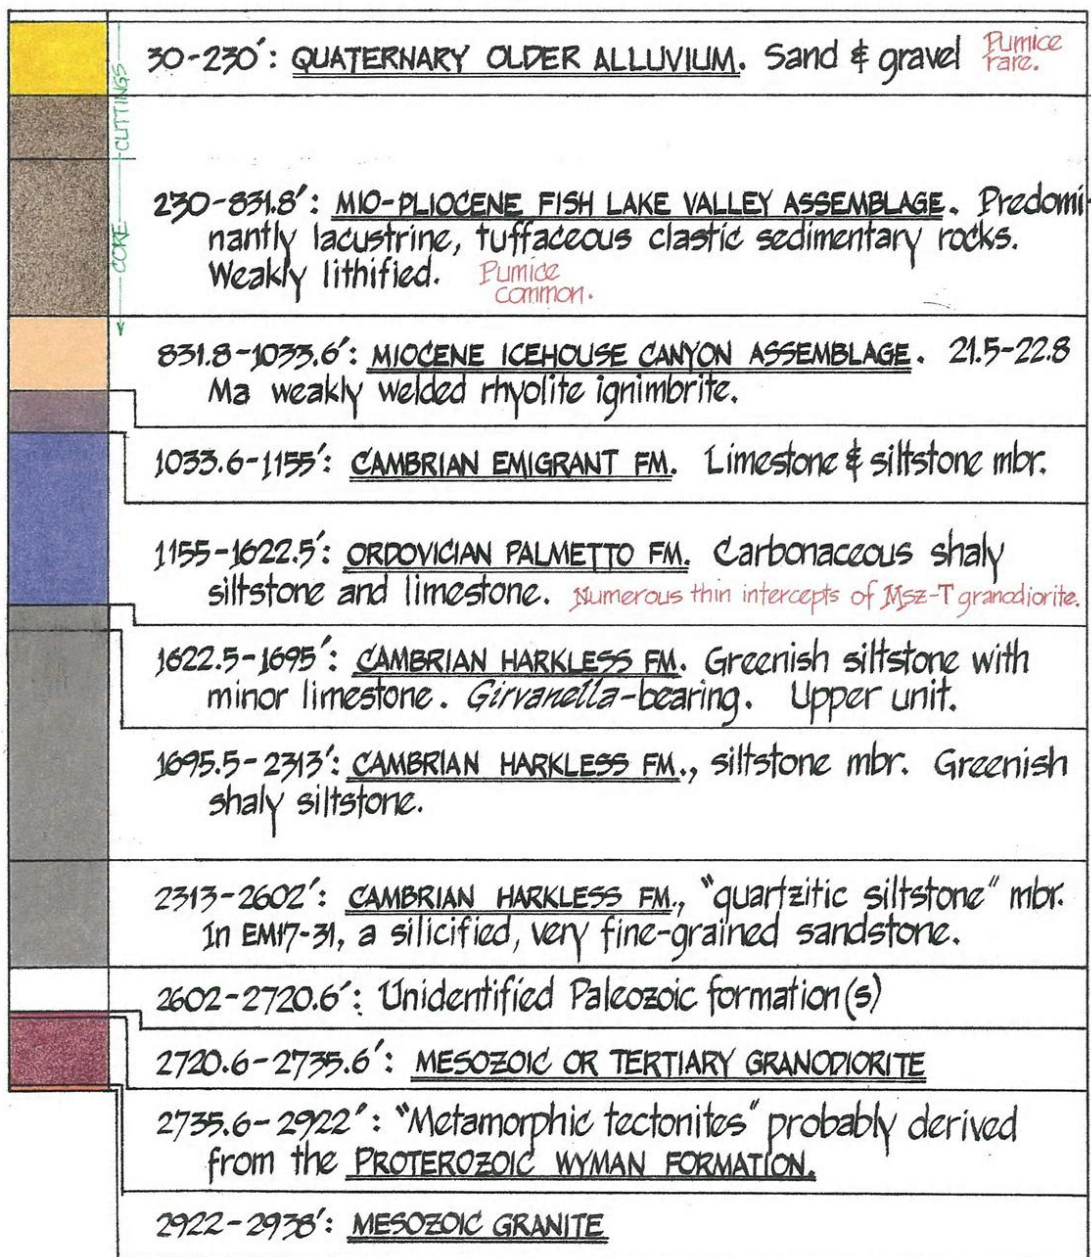 30-230': QUATERNARY OLDER ALLUVIUM. Sand & gravel Pumice
rare.
CUTTINGS
CORE
230-831.8': MIO-PLIOCENE FISH LAKE VALLEY ASSEMBLAGE. Predomi-
nantly lacustrine, tuffaceous clastic sedimentary rocks.
Weakly lithified. Pumice
common.
831.8-1033.6': MIOCENE ICEHOUSE CANYON ASSEMBLAGE. 21.5-22.8
Ma weakly welded rhyolite ignimbrite.
1033.6-1155': CAMBRIAN EMIGRANT FM. Limestone & siltstone mbr.
1155-1622.5': ORDOVICIAN PALMETTO FM. Carbonaceous shaly
siltstone and limestone. Numerous thin intercepts of Msz-T granodiorite.
1622.5-1695': CAMBRIAN HARKLESS FM. Greenish siltstone with
minor limestone. Girvanella-bearing. Upper unit.
1695.5-2313': CAMBRIAN HARKLESS FM., siltstone mbr. Greenish
shaly siltstone.
2313-2602': CAMBRIAN HARKLESS FM., "quartzitic siltstone" mbr.
In EM17-31, a silicified, very fine-grained sandstone.
2602-2720.6': Unidentified Paleozoic formation(s)
2720.6-2735.6': MESOZOIC OR TERTIARY GRANODIORITE
2735.6-2922': "Metamorphic tectonites" probably derived
from the PROTEROZOIC WYMAN FORMATION.
2922-2938': MESOZOIC GRANITE